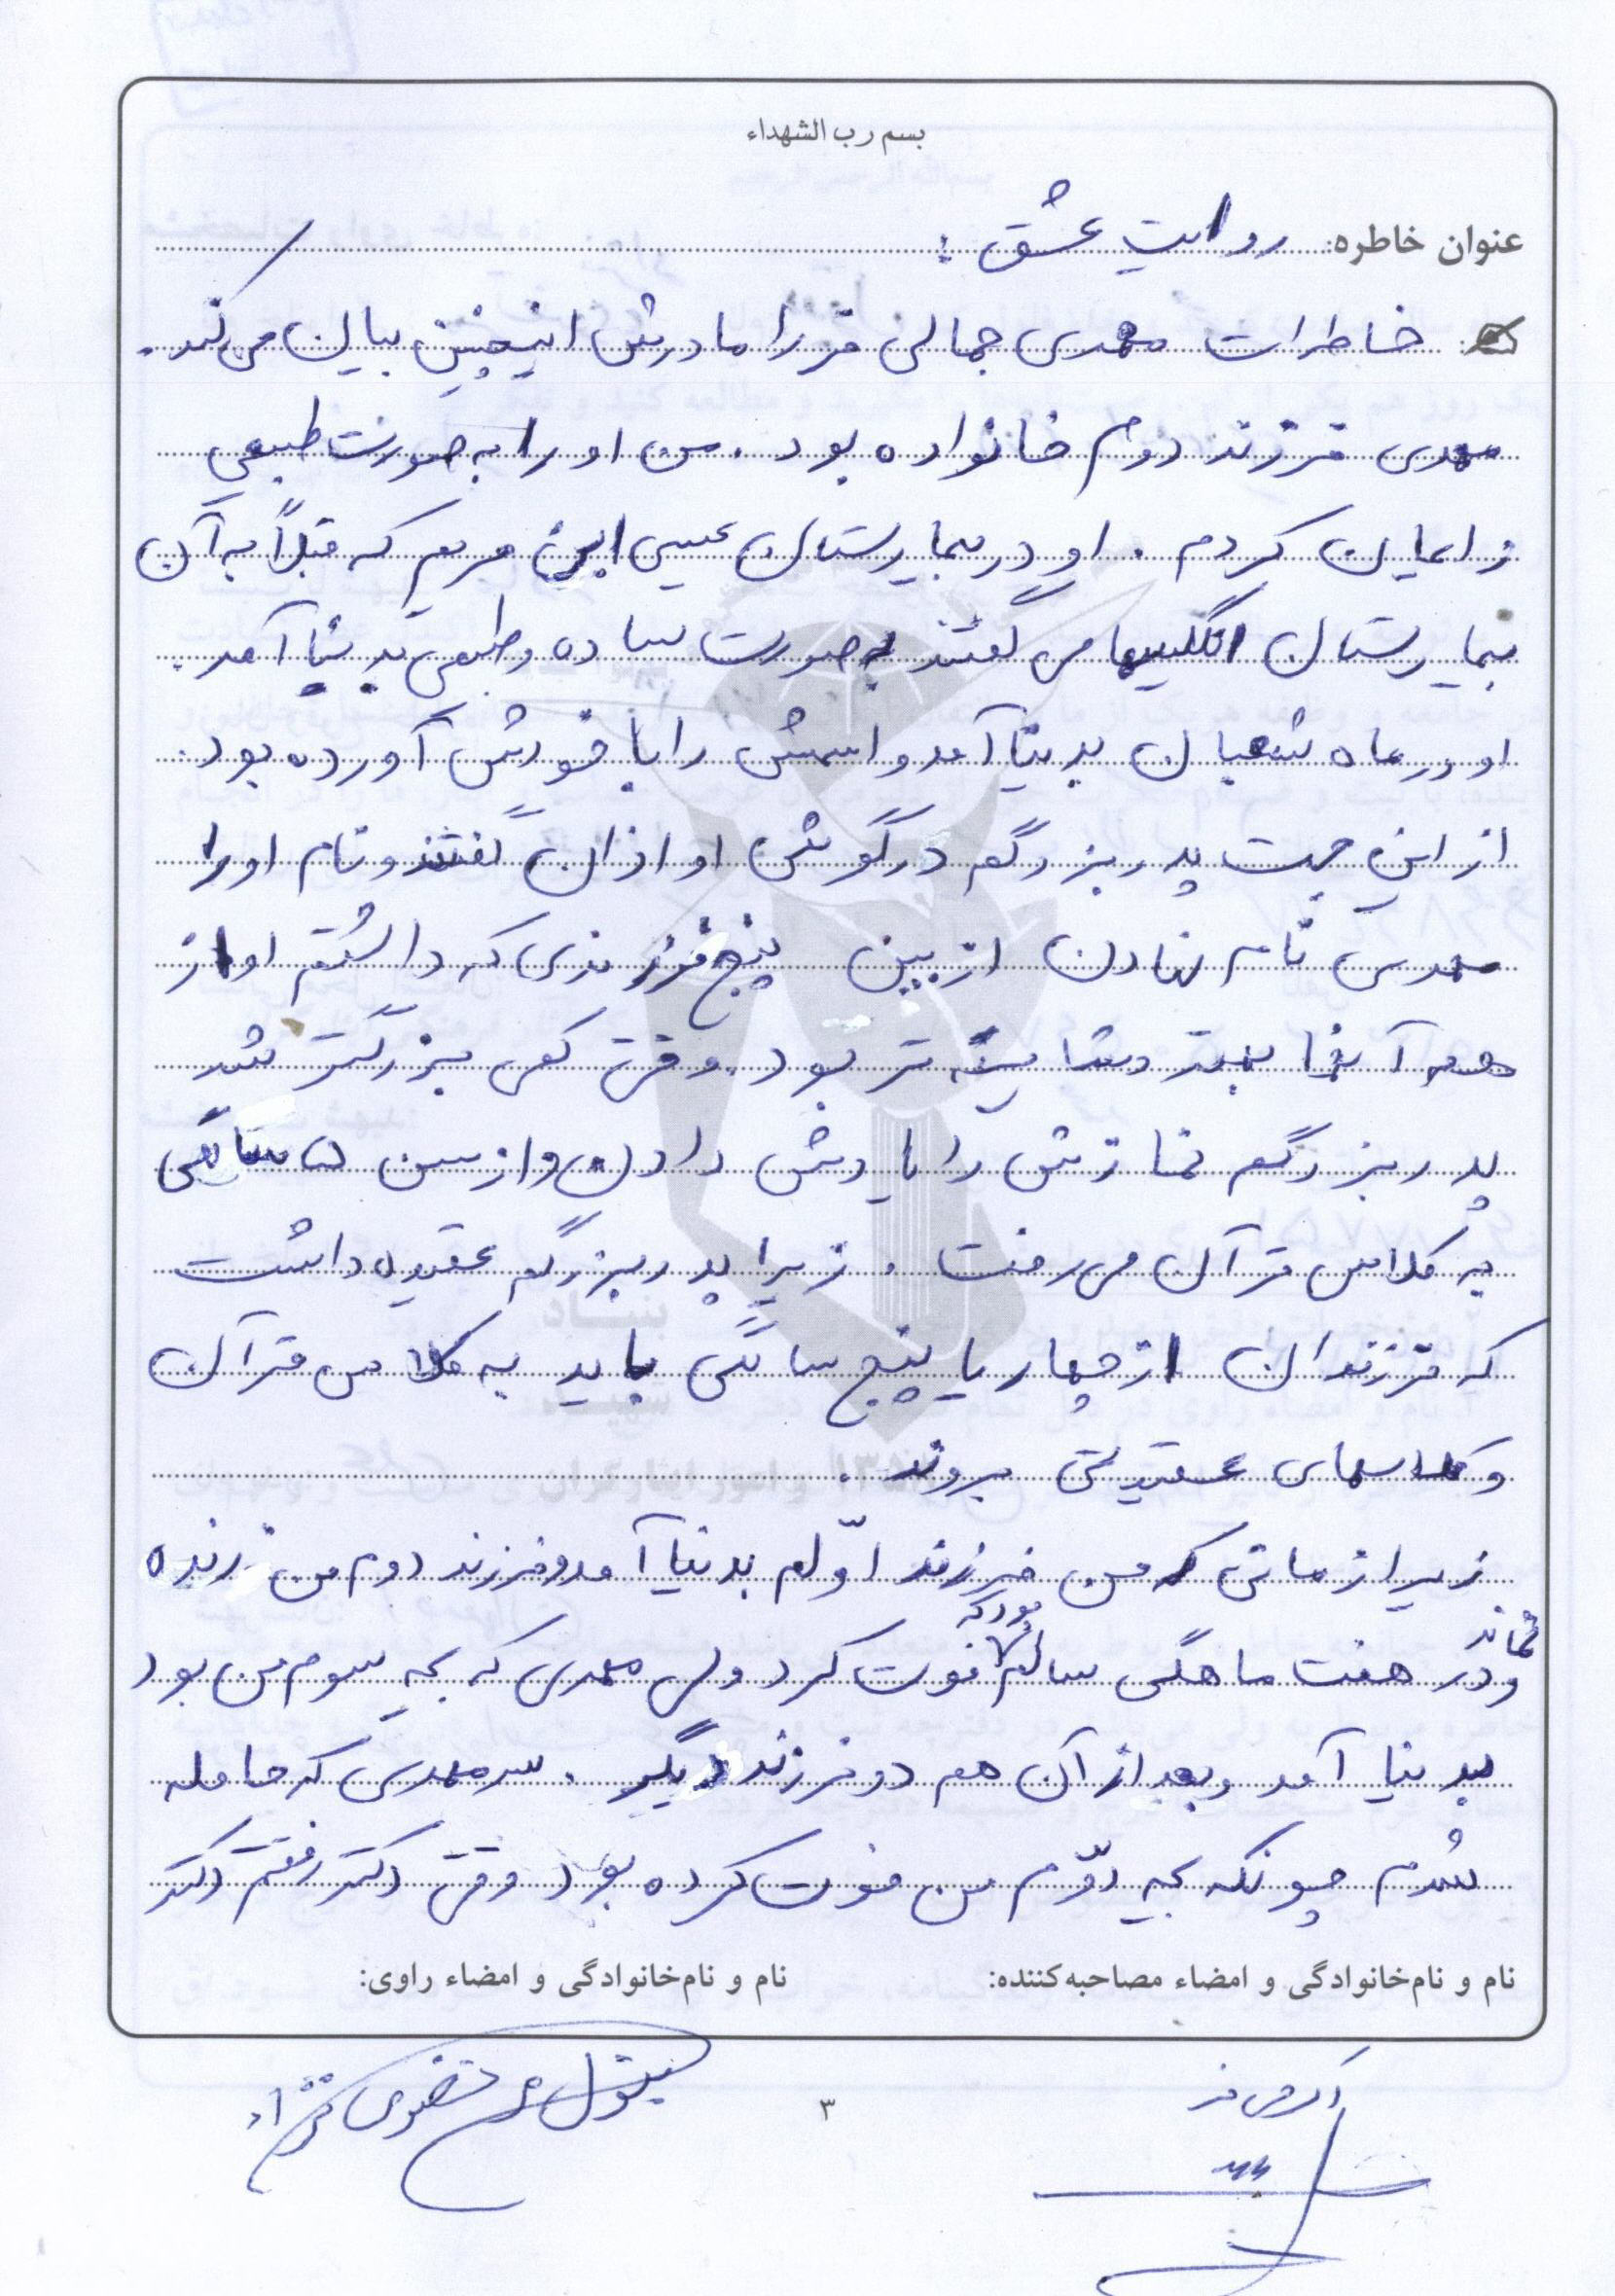 بسم رب الشهداء
عنوان خاطره: روایت عشق :
خاطرات مهدی جمالی فر را مادرش اینچنین بیان می کند.
مهدی فرزند دوم خانواده بود . من او را به صورت طبیعی
زایمان کردم . او در بیمارستان عیسی ابن مریم که قبلاً به آن
بیمارستان انگلیسها می گفتند به صورت ساده و طبیعی بدنیا آمد.
او در ماه شعبان بدنیا آمد و اسمش را با خودش آورده بود.
از این جهت پدربزرگم در گوش او اذان گفتند و نام او را
مهدی نام نهادن از بین پنج فرزندی که داشتم او از
همه آنها بهتر و شایسته تر بود. وقتی کمی بزرگتر شد
پدربزرگم نمازش را یادش دادن و از سن ۵ سالگی
به کلاس قرآن می رفت . زیرا پدربزرگم عقیده داشت
که فرزندان از چهار یا پنج سالگی باید به کلاس قرآن
و کلاسهای عقیدتی بروند .
زیرا زمانی که من فرزند اوّلم بدنیا آمد و فرزند دوم من زنده
نماند
و در هفت ماهگی سالم بود که فوت کرد ولی مهدی که بچه سوم من بود
بدنیا آمد و بعد از آن هم دو فرزند دیگر . سر مهدی که حامله
شدم چونکه بچه دوّم من فوت کرده بود وقتی دکتر رفتم دکتر
نام و نام‌خانوادگی و امضاء مصاحبه‌کننده:
نام و نام‌خانوادگی و امضاء راوی:
۳
بنیاد
شهید
و امور ایثارگران